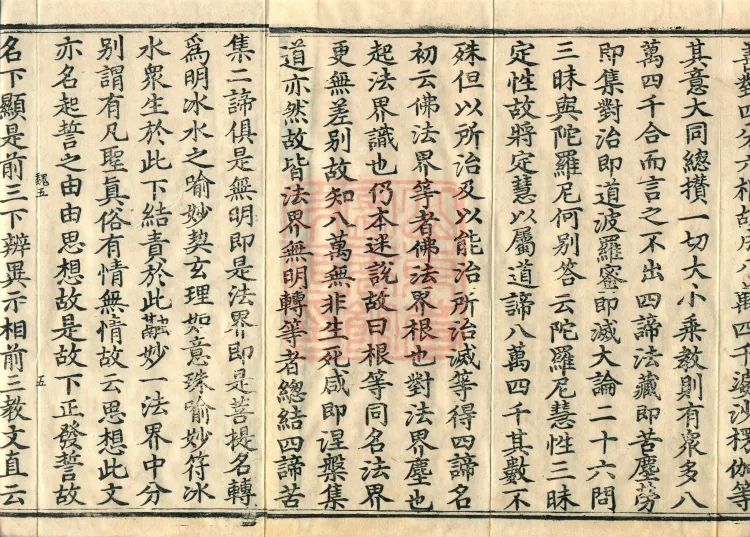 善對四分六相故成八萬四千婆沙楞伽等
其意大同總攢一切大小乘教則有衆多八
萬四千合而言之不出四諦法藏即苦塵勞
即集對治即道波羅蜜即滅大論二十六問
三昧與陀羅尼何別答云陀羅尼慧性三昧
定性故將定慧以屬道諦八萬四千其數不
殊但以所治及以能治所治滅等得四諦名
初云佛法界等者佛法界根也對法界塵也
起法界識也仍本迷說故曰根等同名法界
更無差別故知八萬無非生死咸即涅槃集
道亦然故皆法界無明轉等者總結四諦苦
集二諦俱是無明即是法界即是菩提名轉
爲明冰水之喻妙契玄理如意珠喻妙符冰
水衆生於此下結責於此融妙一法界中分
別謂有凡聖真俗有情無情故云思想此文
亦名起誓之由由思想故是故下正發誓故
魏五 五
名下顯是前三下辨異示相前三教文直云